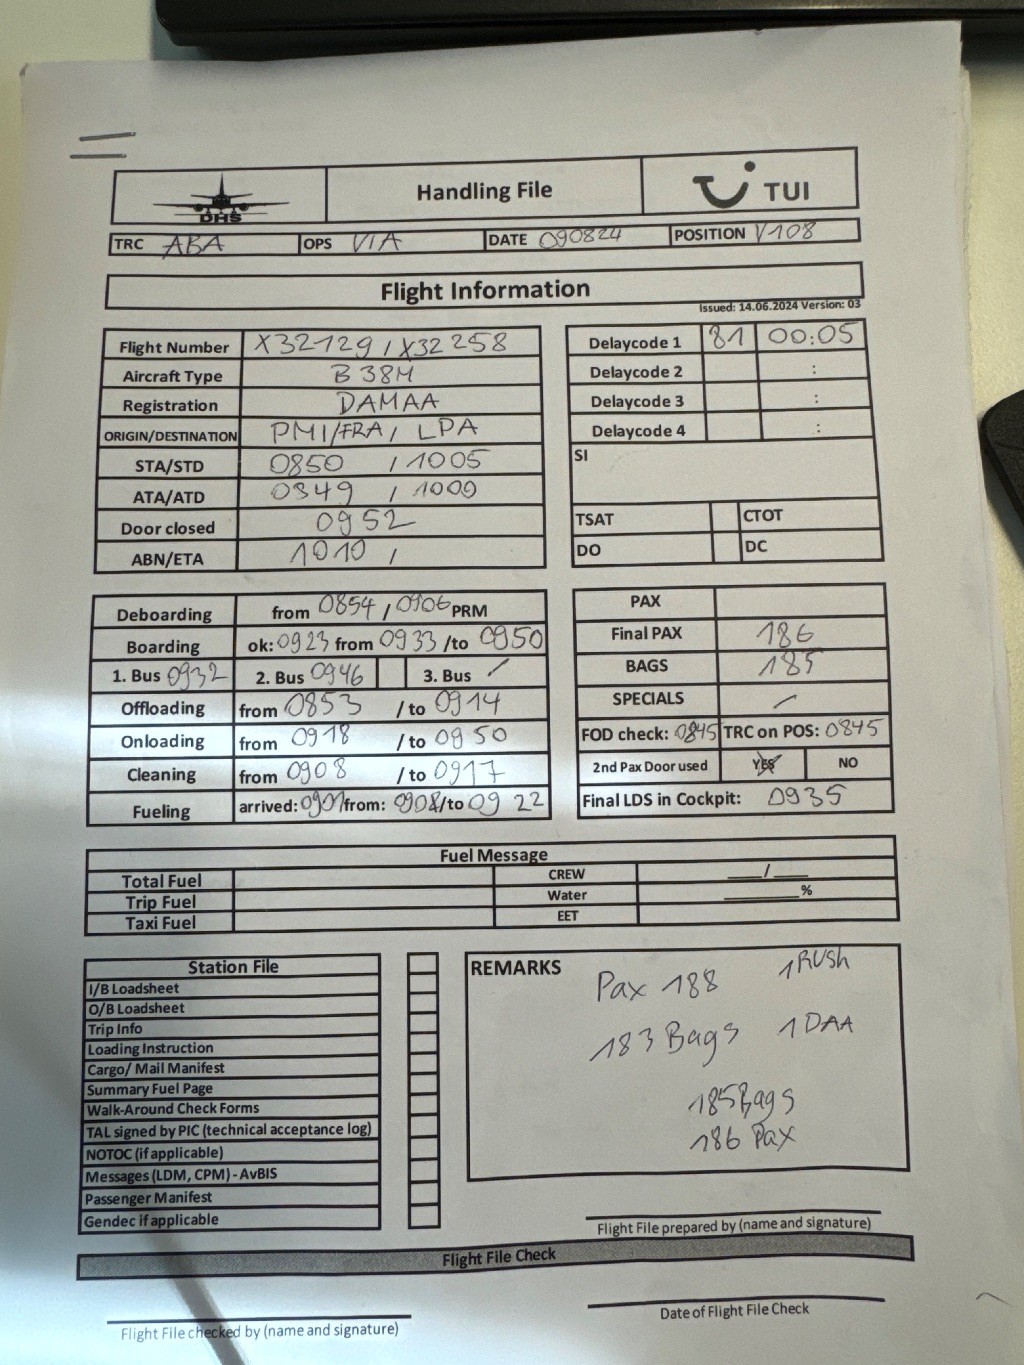 DHS
Handling File
TUI
TRC ABA OPS VIA DATE 090824 POSITION V108
Flight Information
Issued: 14.06.2024 Version: 03
Flight Number X32129 / X32258
Aircraft Type B38M
Registration DAMAA
ORIGIN/DESTINATION PMI/FRA / LPA
STA/STD 0850 / 1005
ATA/ATD 0349 / 1000
Door closed 0952
ABN/ETA 1010 /
Delaycode 1 81 00:05
Delaycode 2 :
Delaycode 3 :
Delaycode 4 :
SI
TSAT CTOT
DO DC
Deboarding from 0854 / 0906 PRM
Boarding ok: 0923 from 0933 /to 0950
1. Bus 0932 2. Bus 0946 3. Bus /
Offloading from 0853 /to 0914
Onloading from 0918 /to 0950
Cleaning from 0908 /to 0917
Fueling arrived: 0901 from: 0908 /to 0922
PAX
Final PAX 186
BAGS 185
SPECIALS /
FOD check: 0845 TRC on POS: 0845
2nd Pax Door used YES NO
Final LDS in Cockpit: 0935
Fuel Message
Total Fuel CREW ___/___
Trip Fuel Water ______%
Taxi Fuel EET
Station File
I/B Loadsheet
O/B Loadsheet
Trip Info
Loading Instruction
Cargo/ Mail Manifest
Summary Fuel Page
Walk-Around Check Forms
TAL signed by PIC (technical acceptance log)
NOTOC (if applicable)
Messages (LDM, CPM) - AvBIS
Passenger Manifest
Gendec if applicable
REMARKS
Pax 188 1 RUSH
183 Bags 1 DAA
185 Bags
186 Pax
Flight File prepared by (name and signature)
Flight File Check
Flight File checked by (name and signature)
Date of Flight File Check